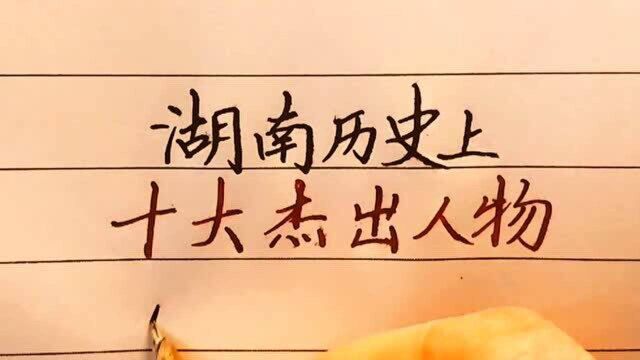 湖南历史上
十大杰出人物